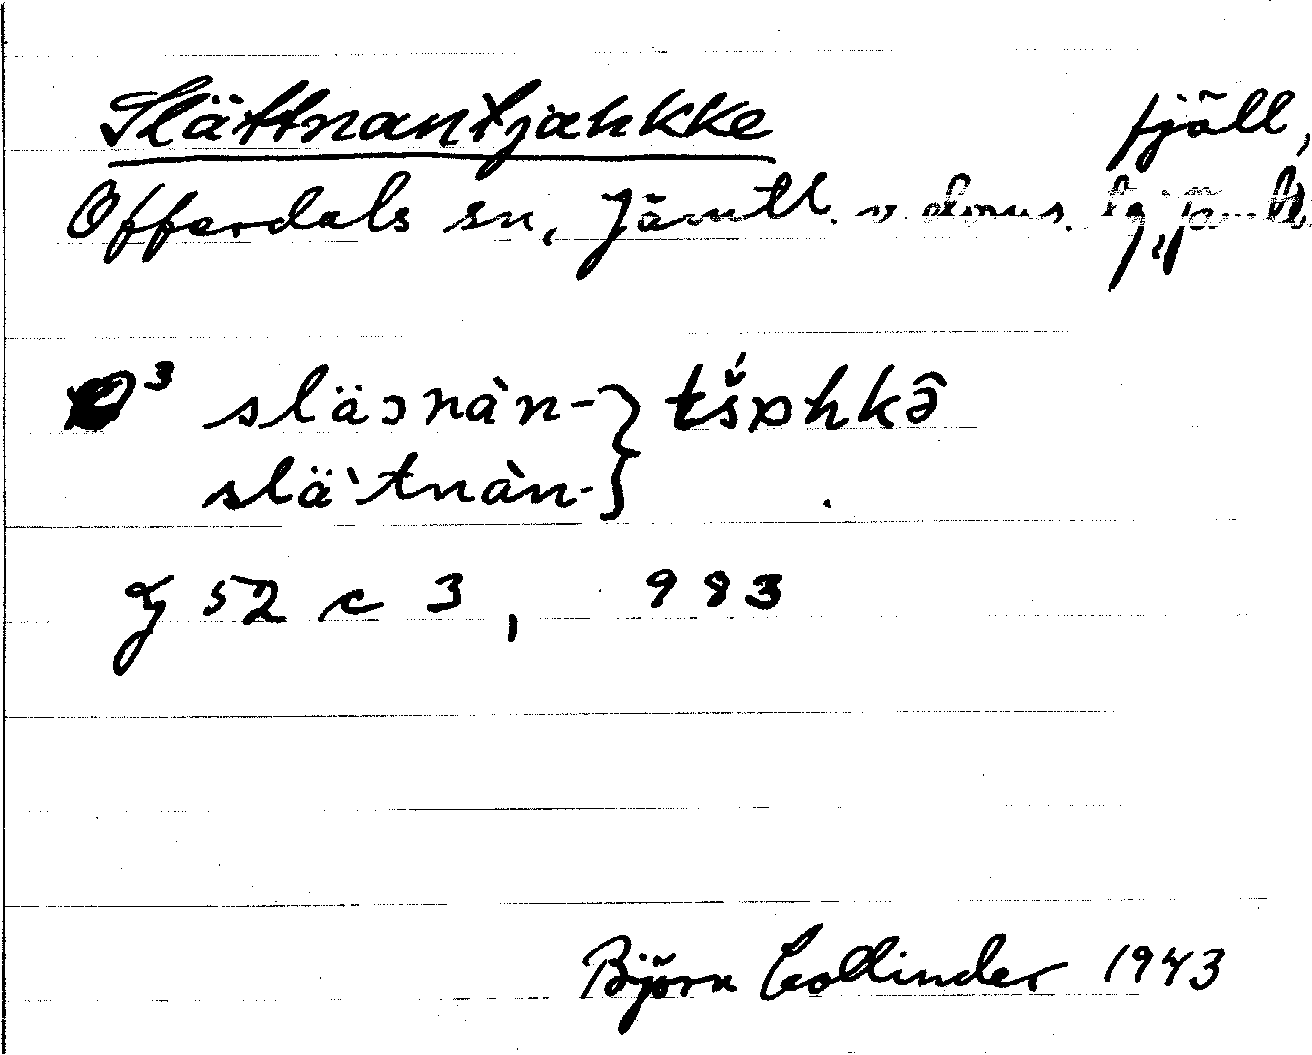 Slättnantjahkke fjäll,
Offerdals sn, Jämtl. v. doms. tg, Jämtl.
3 släɔnàn- } tšɒhkə̂
slä`tnàn- }
G 52 c 3, 983
Björn Collinder 1943